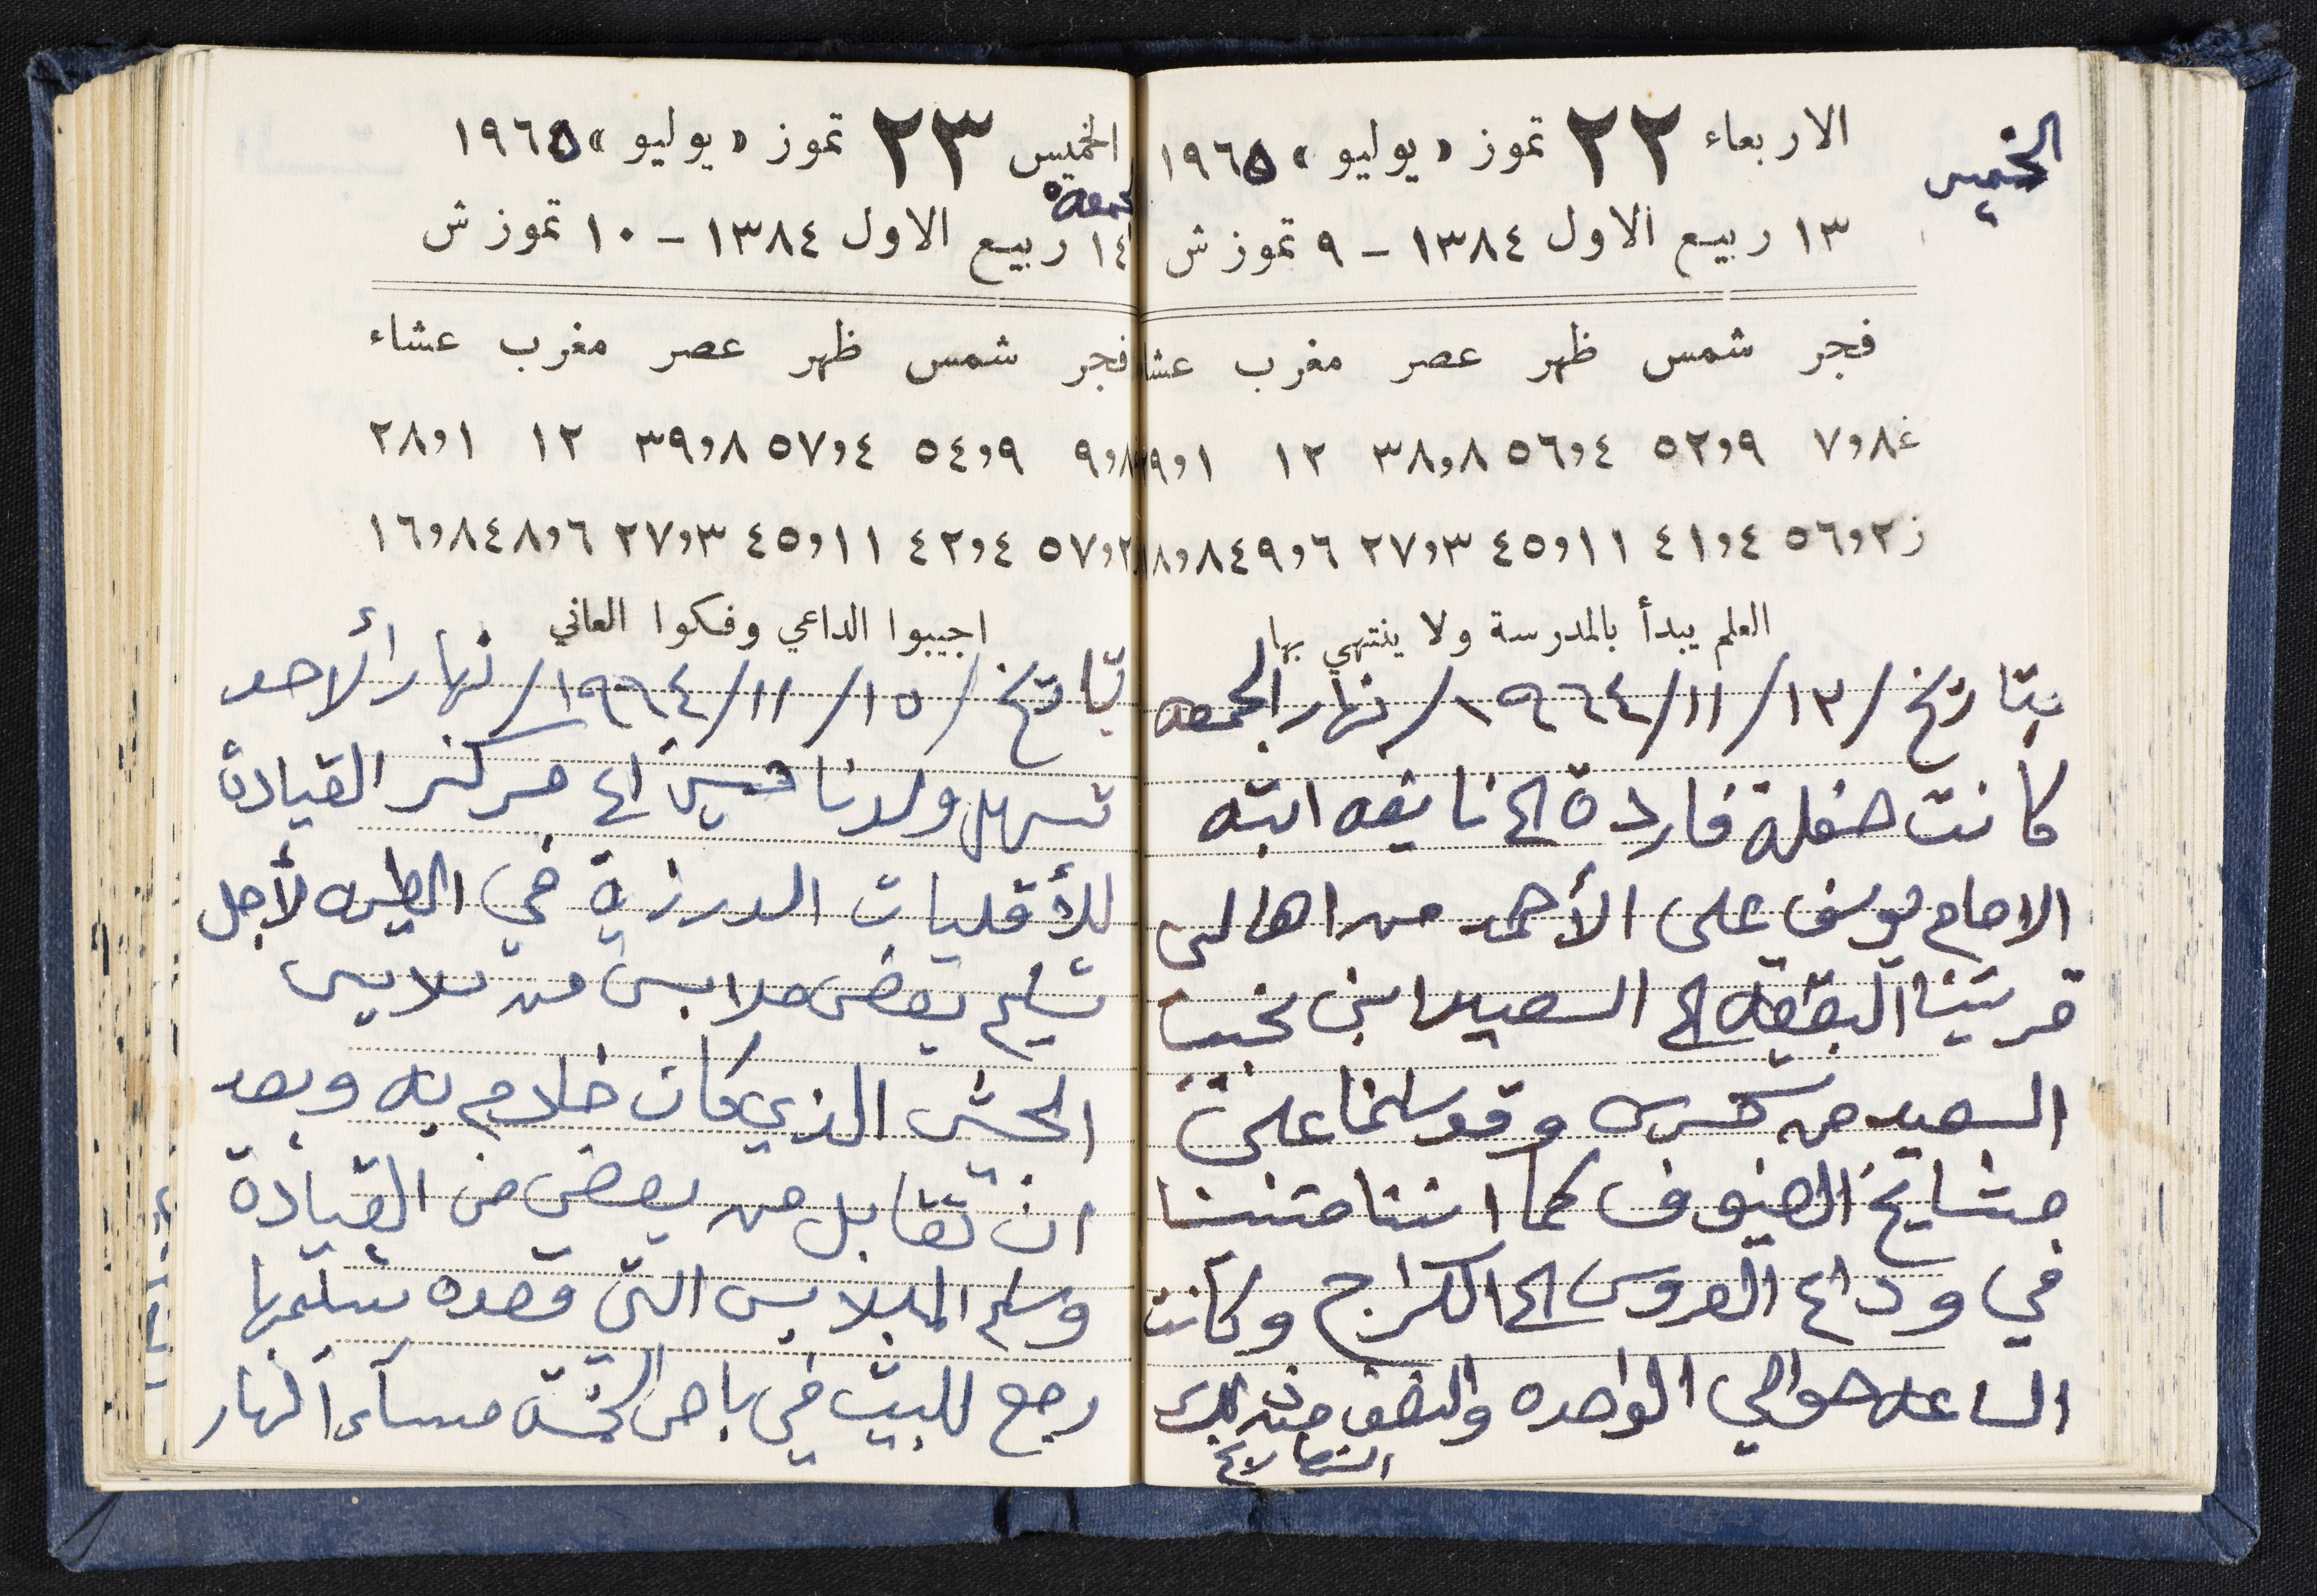 الخميس
الاربعاء ٢٢ تموز «يوليو» ١٩٦٥
١٣ ربيع الاول ١٣٨٤ - ٩ تموز ش
فجر شمس ظهر عصر مغرب عشا
غ ٧٫٨ ٥٢٫٩ ٥٦٫٤ ٣٨٫٨ ١٢ ٩٫١
ز ٥٦٫٢ ٤١٫٤ ٤٥٫١١ ٢٧٫٣ ٤٩٫٦ ٨٫٨
العلم يبدأ بالمدرسة ولا ينتهي بها
بتاريخ /١٣/١١/١٩٦٤/ نهار الجمعه
كانت حفلة فاردة الى نايفه ابنة
الامام يوسف علي الأحمد من اهالي
قريتنا البقيعه الى السعيد ابن نجيب
السعيد من كسرى وقد سلمنا على
مشايخ الضيوف كما اننا مشينا
في وداع العروس الى الكراج وكانت
الساعه حوالي الواحده والنصف من ذلك
التاريخ
الخميس ٢٣ تموز «يوليو» ١٩٦٥
جمعة
١٤ ربيع الاول ١٣٨٤ - ١٠ تموز ش
فجر شمس ظهر عصر مغرب عشاء
٩٫٨ ٥٤٫٩ ٥٧٫٤ ٣٩٫٨ ١٢ ٢٨٫١
٥٧٫٢ ٤٢٫٤ ٤٥٫١١ ٢٧٫٣ ٤٨٫٦ ١٦٫٨
اجيبوا الداعي وفكوا العاني
بتاريخ /١٥/١١/١٩٦٤/ نهار الأحد
تسهل ولدنا حسين الى مركز القيادة
للأقليات الدرزية في الطيره لأجل
تسليم بعض ملابس من ملابس
الجيش الذي كان خادم به وبعد
ان تقابل من بعض من القيادة
وسلم الملابس التي قصده تسليمها
رجع للبيت في باص الخمسة مساء النهار